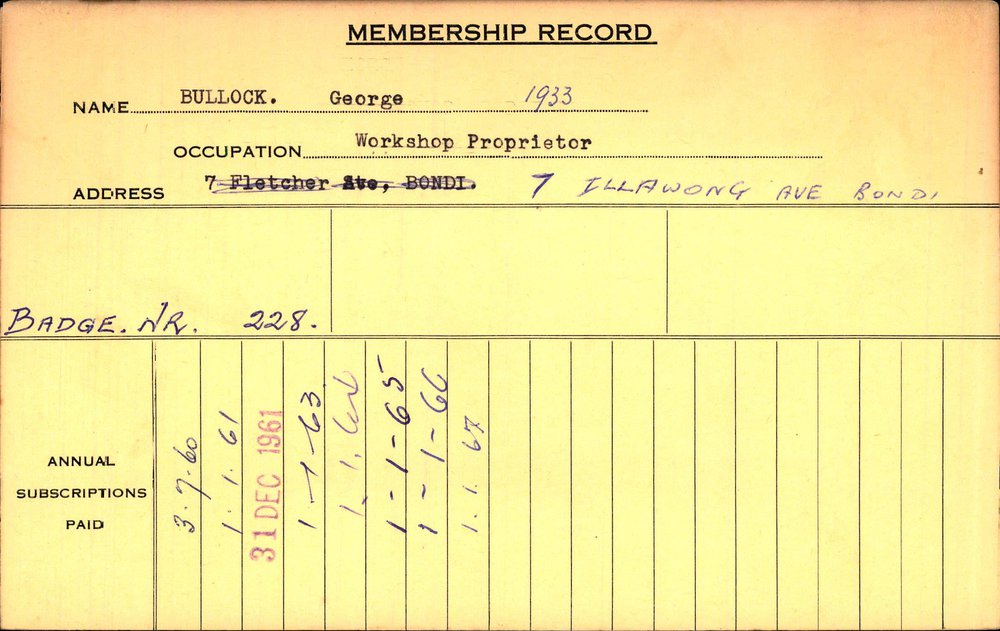 MEMBERSHIP RECORD
NAME BULLOCK. George 1933
OCCUPATION Workshop Proprietor
ADDRESS 7 Fletcher Ave, BONDI. 7 ILLAWONG AVE BONDI
BADGE. NR. 228.
ANNUAL
SUBSCRIPTIONS
PAID
3.7.60
1.1.61
31 DEC 1961
1-1-63
1.1.64
1-1-65
1-1-66
1.1.67